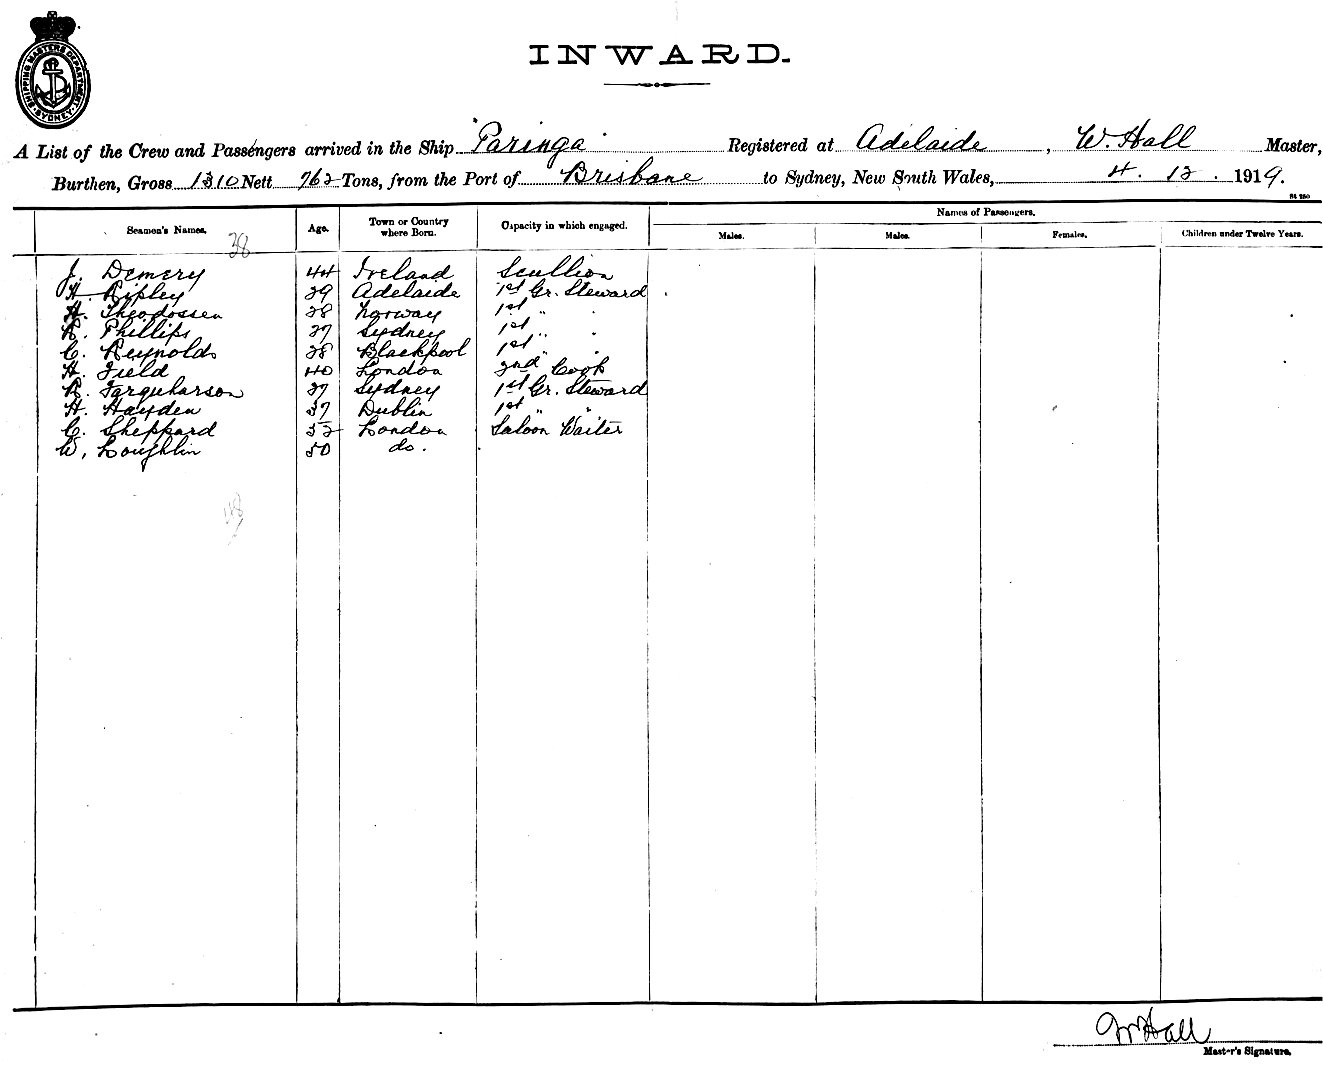 SHIPPING MASTERS DEPARTMENT SYDNEY
INWARD.
A List of the Crew and Passengers arrived in the Ship "Paringa" Registered at Adelaide, W. Hall Master,
Burthen, Gross 1310 Nett 762 Tons, from the Port of Brisbane to Sydney, New South Wales, 4. 12. 1919.
St 250
Seamen's Names. Age. Town or Country where Born. Capacity in which engaged. Names of Passengers.
Males. Males. Females. Children under Twelve Years.
38
J. Demery 44 Ireland Scullion
H. Ripley 29 Adelaide 1st Gr. Steward
H. Theodossen 28 Norway 1st " "
R. Phillips 27 Sydney 1st " "
C. Reynolds 28 Blackpool 1st " "
H. Field 40 London 2nd Cook
R. Farquharson 27 Sydney 1st Gr. Steward
H. Hayden 37 Dublin 1st " "
C. Sheppard 52 London Saloon Waiter
W. Loughlin 50 do.
48
W Hall
Master's Signature.